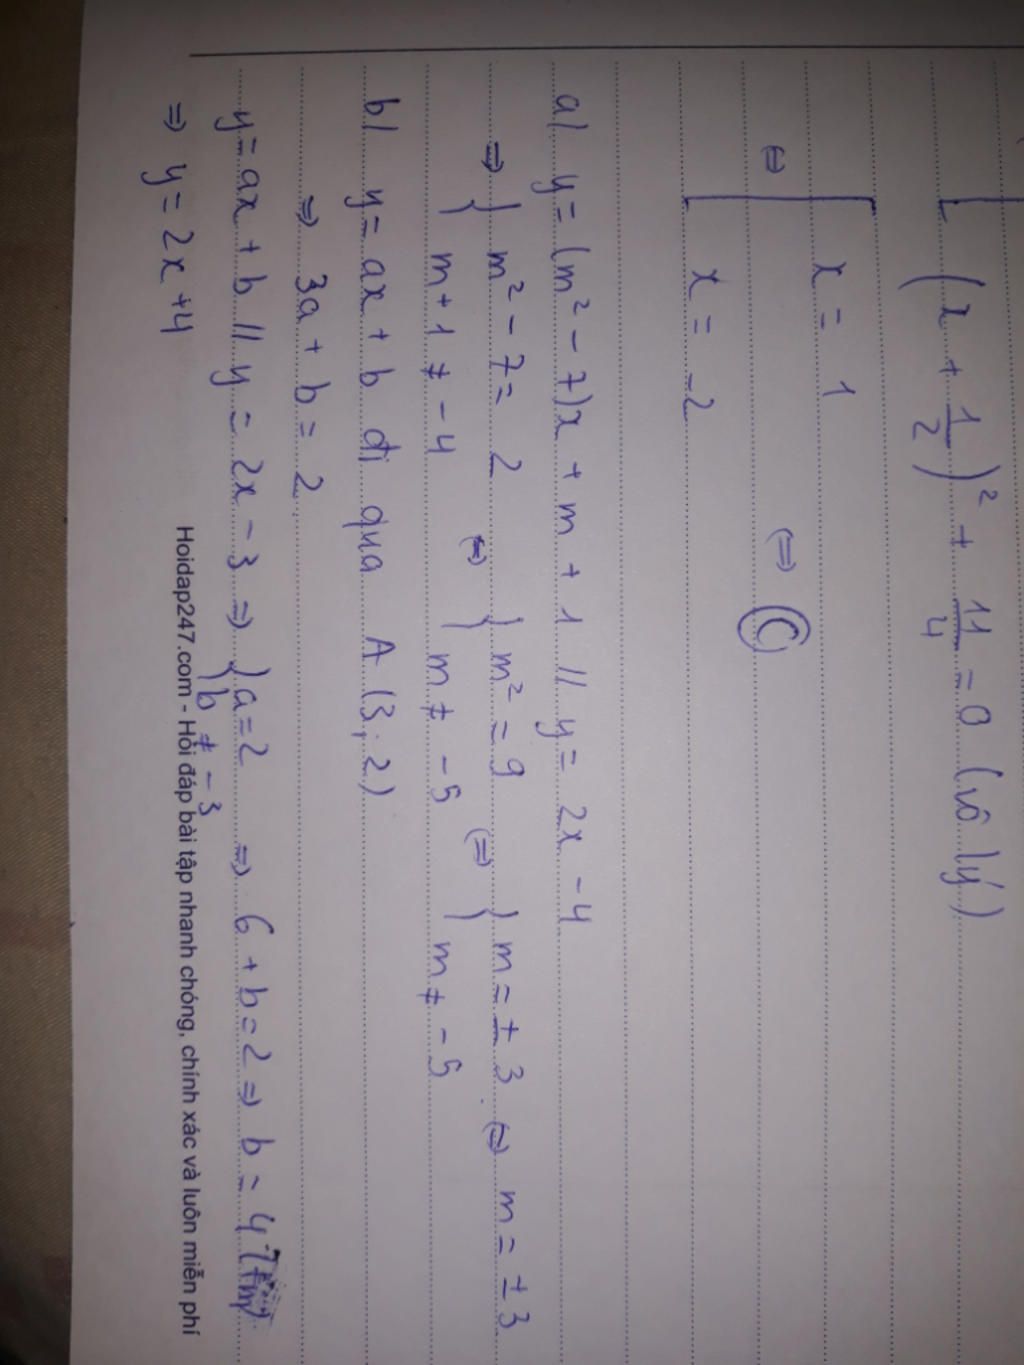 (x + 1/2)² + 11/4 = 0 (vô lý)
⇔ [ x = 1
x = -2 ⇔ C
a) y = (m² - 7)x + m + 1 // y = 2x - 4
⇒ { m² - 7 = 2 ⇔ { m² = 9 ⇔ { m = ± 3 ⇔ m = ± 3
m + 1 ≠ - 4 m ≠ - 5 m ≠ - 5
b) y = ax + b đi qua A (3; 2)
⇒ 3a + b = 2
y = ax + b // y = 2x - 3 ⇒ { a = 2 ⇒ 6 + b = 2 ⇒ b = 4 (tm)
b ≠ - 3
⇒ y = 2x + 4
Hoidap247.com - Hỏi đáp bài tập nhanh chóng, chính xác và luôn miễn phí